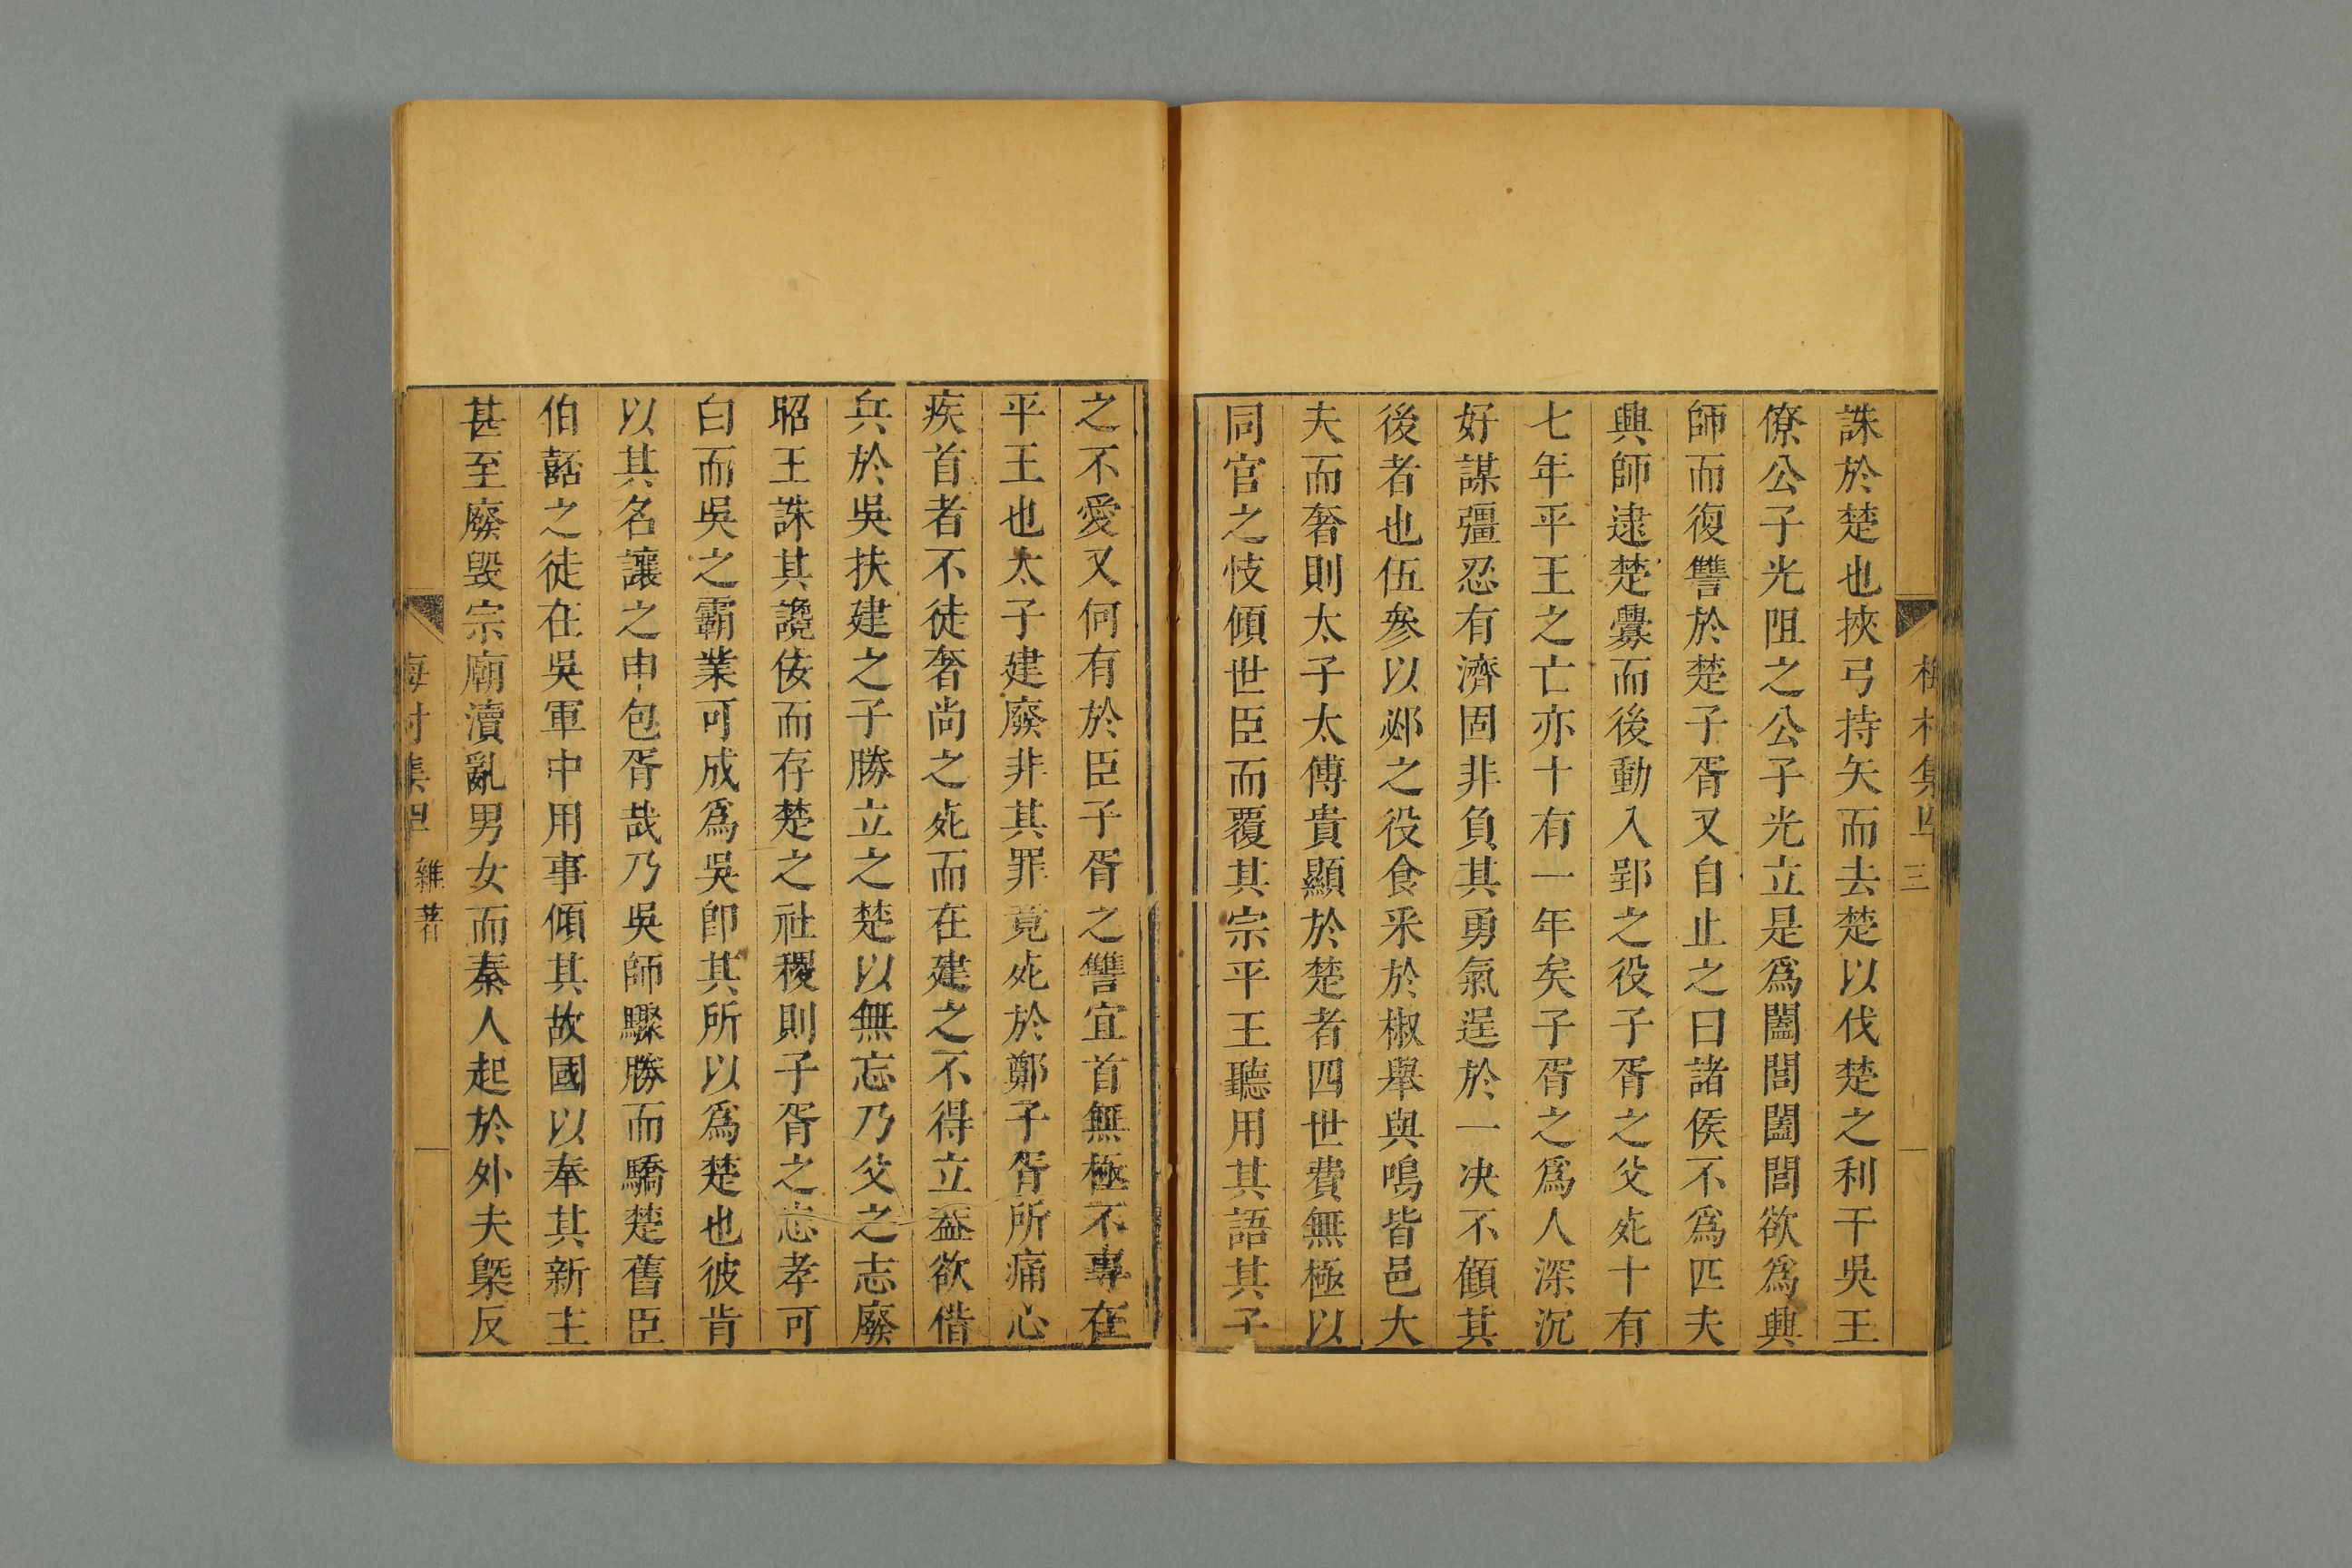 三
誅於楚也挾弓持矢而去楚以伐楚之利干吳王
僚公子光阻之公子光立是爲闔閭闔閭欲爲興
師而復讐於楚子胥又自止之曰諸侯不爲匹夫
興師逮楚釁而後動入郢之役子胥之父死十有
七年平王之亡亦十有一年矣子胥之爲人深沉
好謀彊忍有濟固非負其勇氣逞於一决不顧其
後者也伍參以邲之役食采於椒舉與鳴皆邑大
夫而奢則太子太傅貴顯於楚者四世費無極以
同官之忮傾世臣而覆其宗平王聽用其語其子
之不愛又何有於臣子胥之讐宜首無極不專在
平王也太子建廢非其罪竟死於鄭子胥所痛心
疾首者不徒奢尚之死而在建之不得立益欲借
兵於吳扶建之子勝立之楚以無忘乃父之志廢
昭王誅其讒佞而存楚之社稷則子胥之志孝可
白而吳之霸業可成爲吳卽其所以爲楚也彼肯
以其名讓之申包胥哉乃吳師驟勝而驕楚舊臣
伯嚭之徒在吳軍中用事傾其故國以奉其新主
甚至廢毁宗廟瀆亂男女而秦人起於外夫槩反
雜著